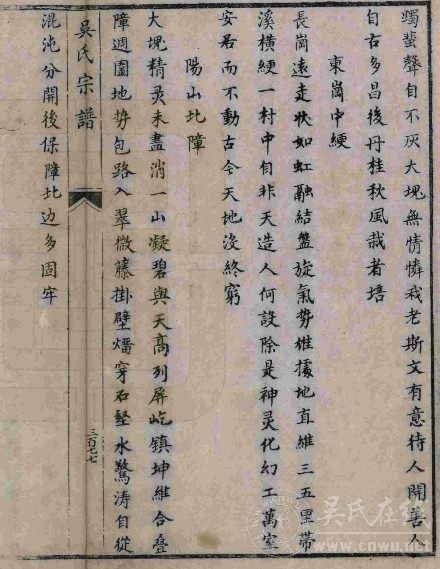 燭蛩聲自不灰大塊無情憐我老斯文有意待人開善人
自古多昌後丹桂秋風栽者培
東崗中綆
長崗遠走狀如虹融結盤旋氣勢雄據地直維三五里帶
溪橫綆一村中自非天造人何設除是神灵化幻工萬室
安居而不動古今天地沒終窮
陽山北障
大塊精灵未盡消一山凝碧與天高列屏屹鎮坤維合叠
障週圍地勢包路入翠微藤掛壁燔穿石墜水驚涛自從
吳氏宗譜
三百七七
混沌分開後保障北边多固牢
吴氏在线
www.cnwu.net